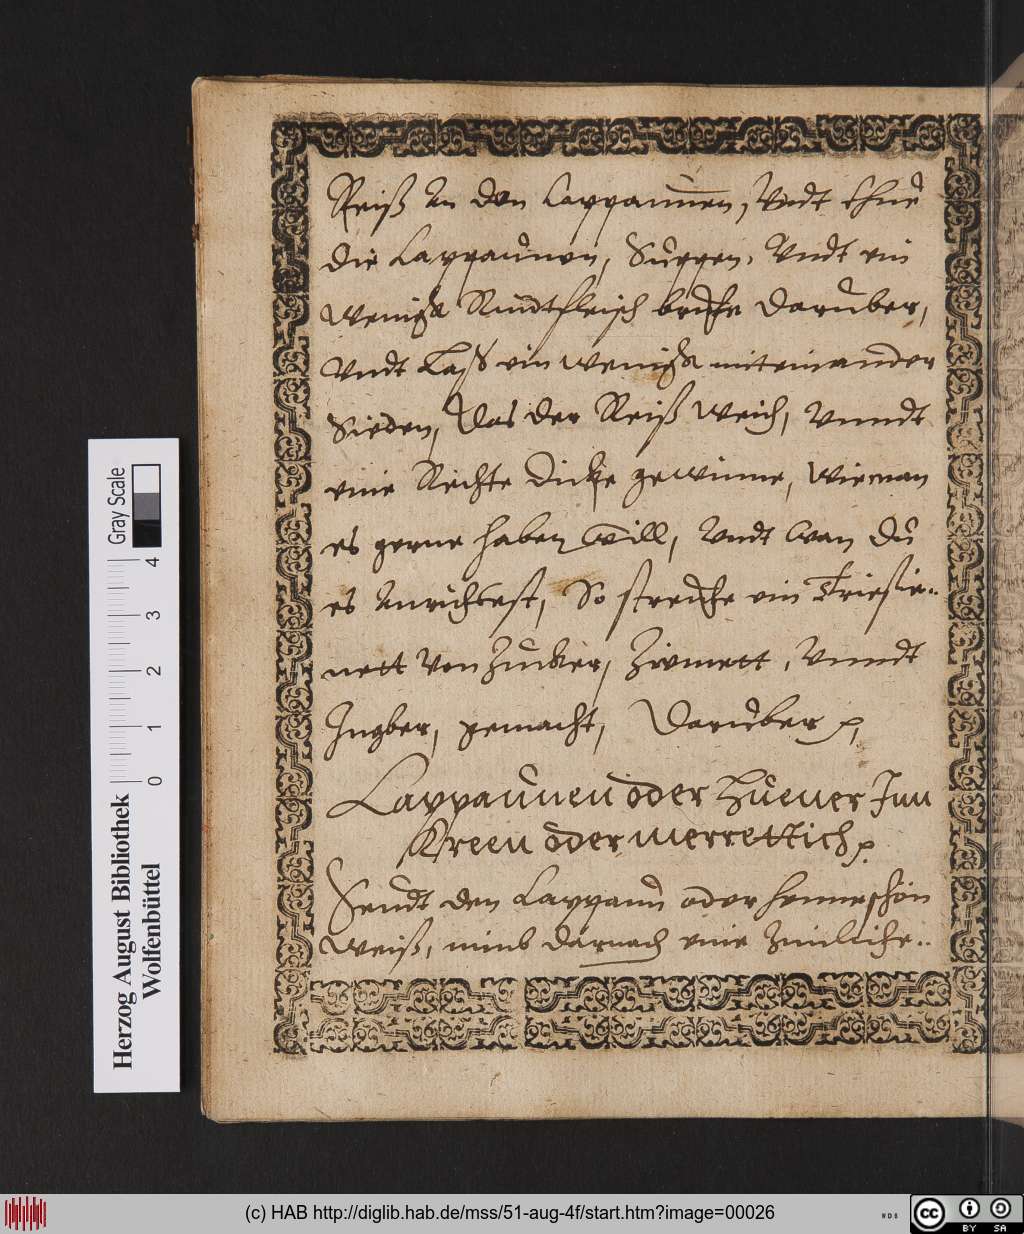 Reiß An den Cappaunen, Vndt thue
die Cappaunen, Suppen, Vndt ein
weinigk Rindtfleisch bruhe daruber,
Vndt Laß ein wenigk miteinander
Sieden, Das der Reiß weich, Vnndt
eine Rechte dicke gewinne, wieman
es gerne haben Will, Vndt Wan Du
es Anrichtest, So streuhe ein Triesie-
nett Von Zucker, Zimmett, Vnndt
Ingber, gemacht, Daruber
Cappaunen oder Huener Inn
Kreen oder merrettich
Seudt den Cappaun oder henne schön
weiß, nimb darnach eine Zimliche
Herzog August Bibliothek
Wolfenbüttel
Gray Scale
0 1 2 3 4
(c) HAB http://diglib.hab.de/mss/51-aug-4f/start.htm?image=00026
WDB
cc BY SA